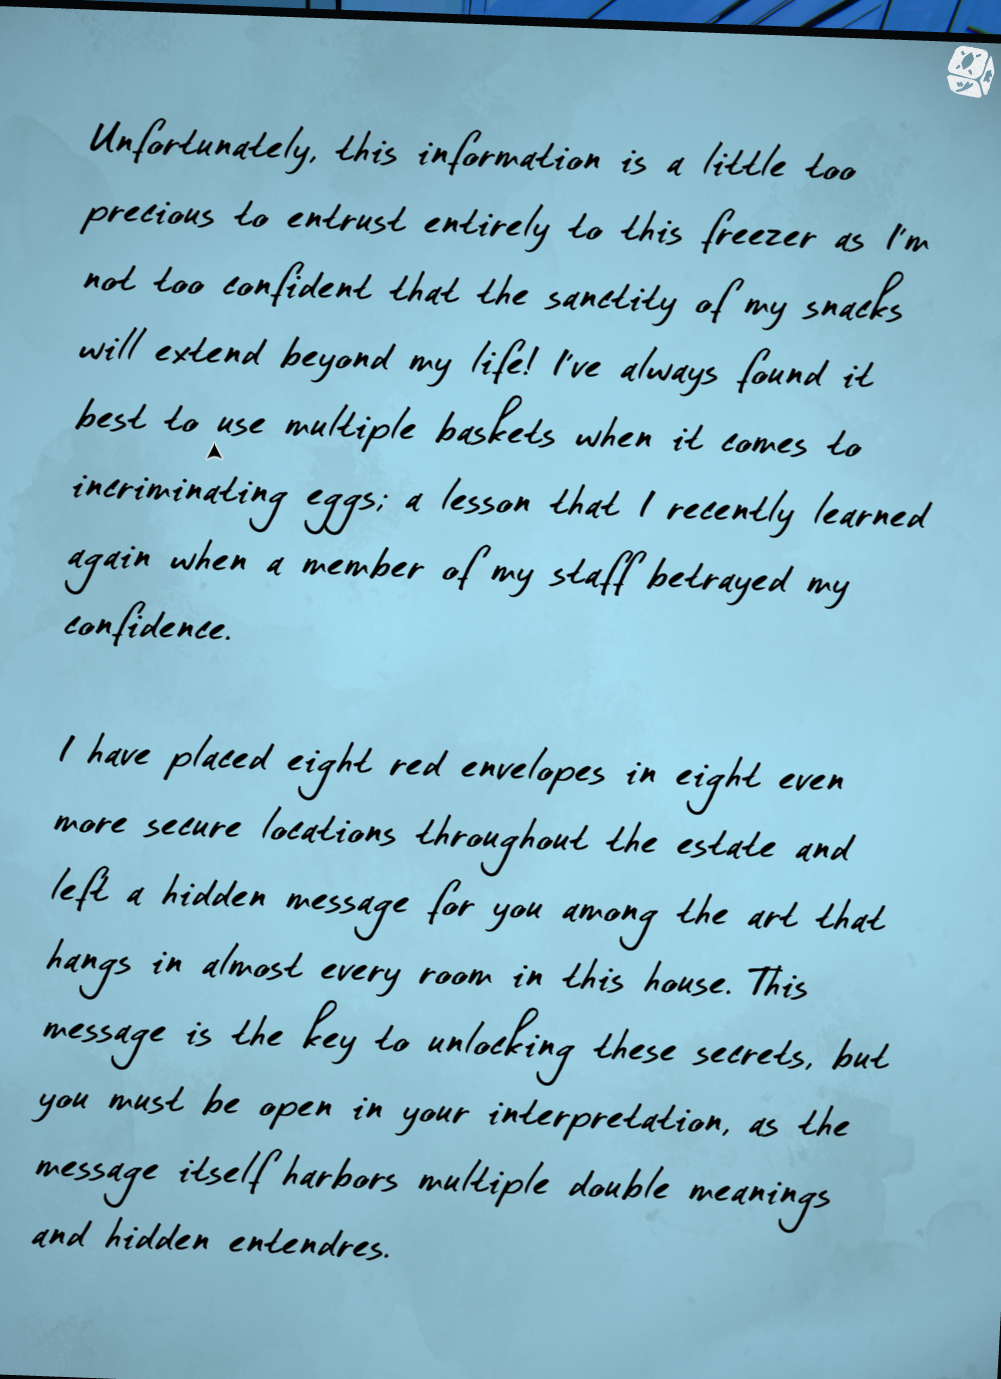 Unfortunately, this information is a little too
precious to entrust entirely to this freezer as I'm
not too confident that the sanctity of my snacks
will extend beyond my life! I've always found it
best to use multiple baskets when it comes to
incriminating eggs; a lesson that I recently learned
again when a member of my staff betrayed my
confidence.
I have placed eight red envelopes in eight even
more secure locations throughout the estate and
left a hidden message for you among the art that
hangs in almost every room in this house. This
message is the key to unlocking these secrets, but
you must be open in your interpretation, as the
message itself harbors multiple double meanings
and hidden entendres.